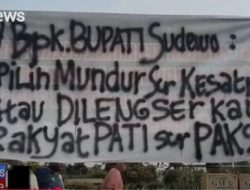 iNews
Bpk. BUPATI Sudewo :
PILIH MUNDUR Scr KESAT
ATAU DILENGSERKAN
RAKYAT PATI scr PAKS